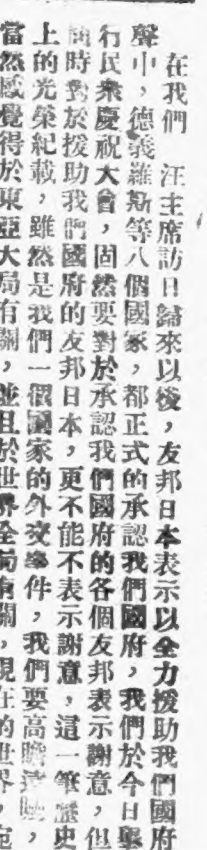 在我們　汪主席訪日歸來以後，友邦日本表示以全力援助我們國府
聲中，德義羅斯等八個國家，都正式的承認我們國府，我們於今日舉
行民衆慶祝大會，固然要對於承認我們國府的各個友邦表示謝意，但
同時對於援助我們國府的友邦日本，更不能不表示謝意，這一筆歷史
上的光榮紀載，雖然是我們一個國家的外交事件，我們要高瞻遠矚，
當然感覺得於東亞大局有關，並且於世界全局有關，現在的世界，